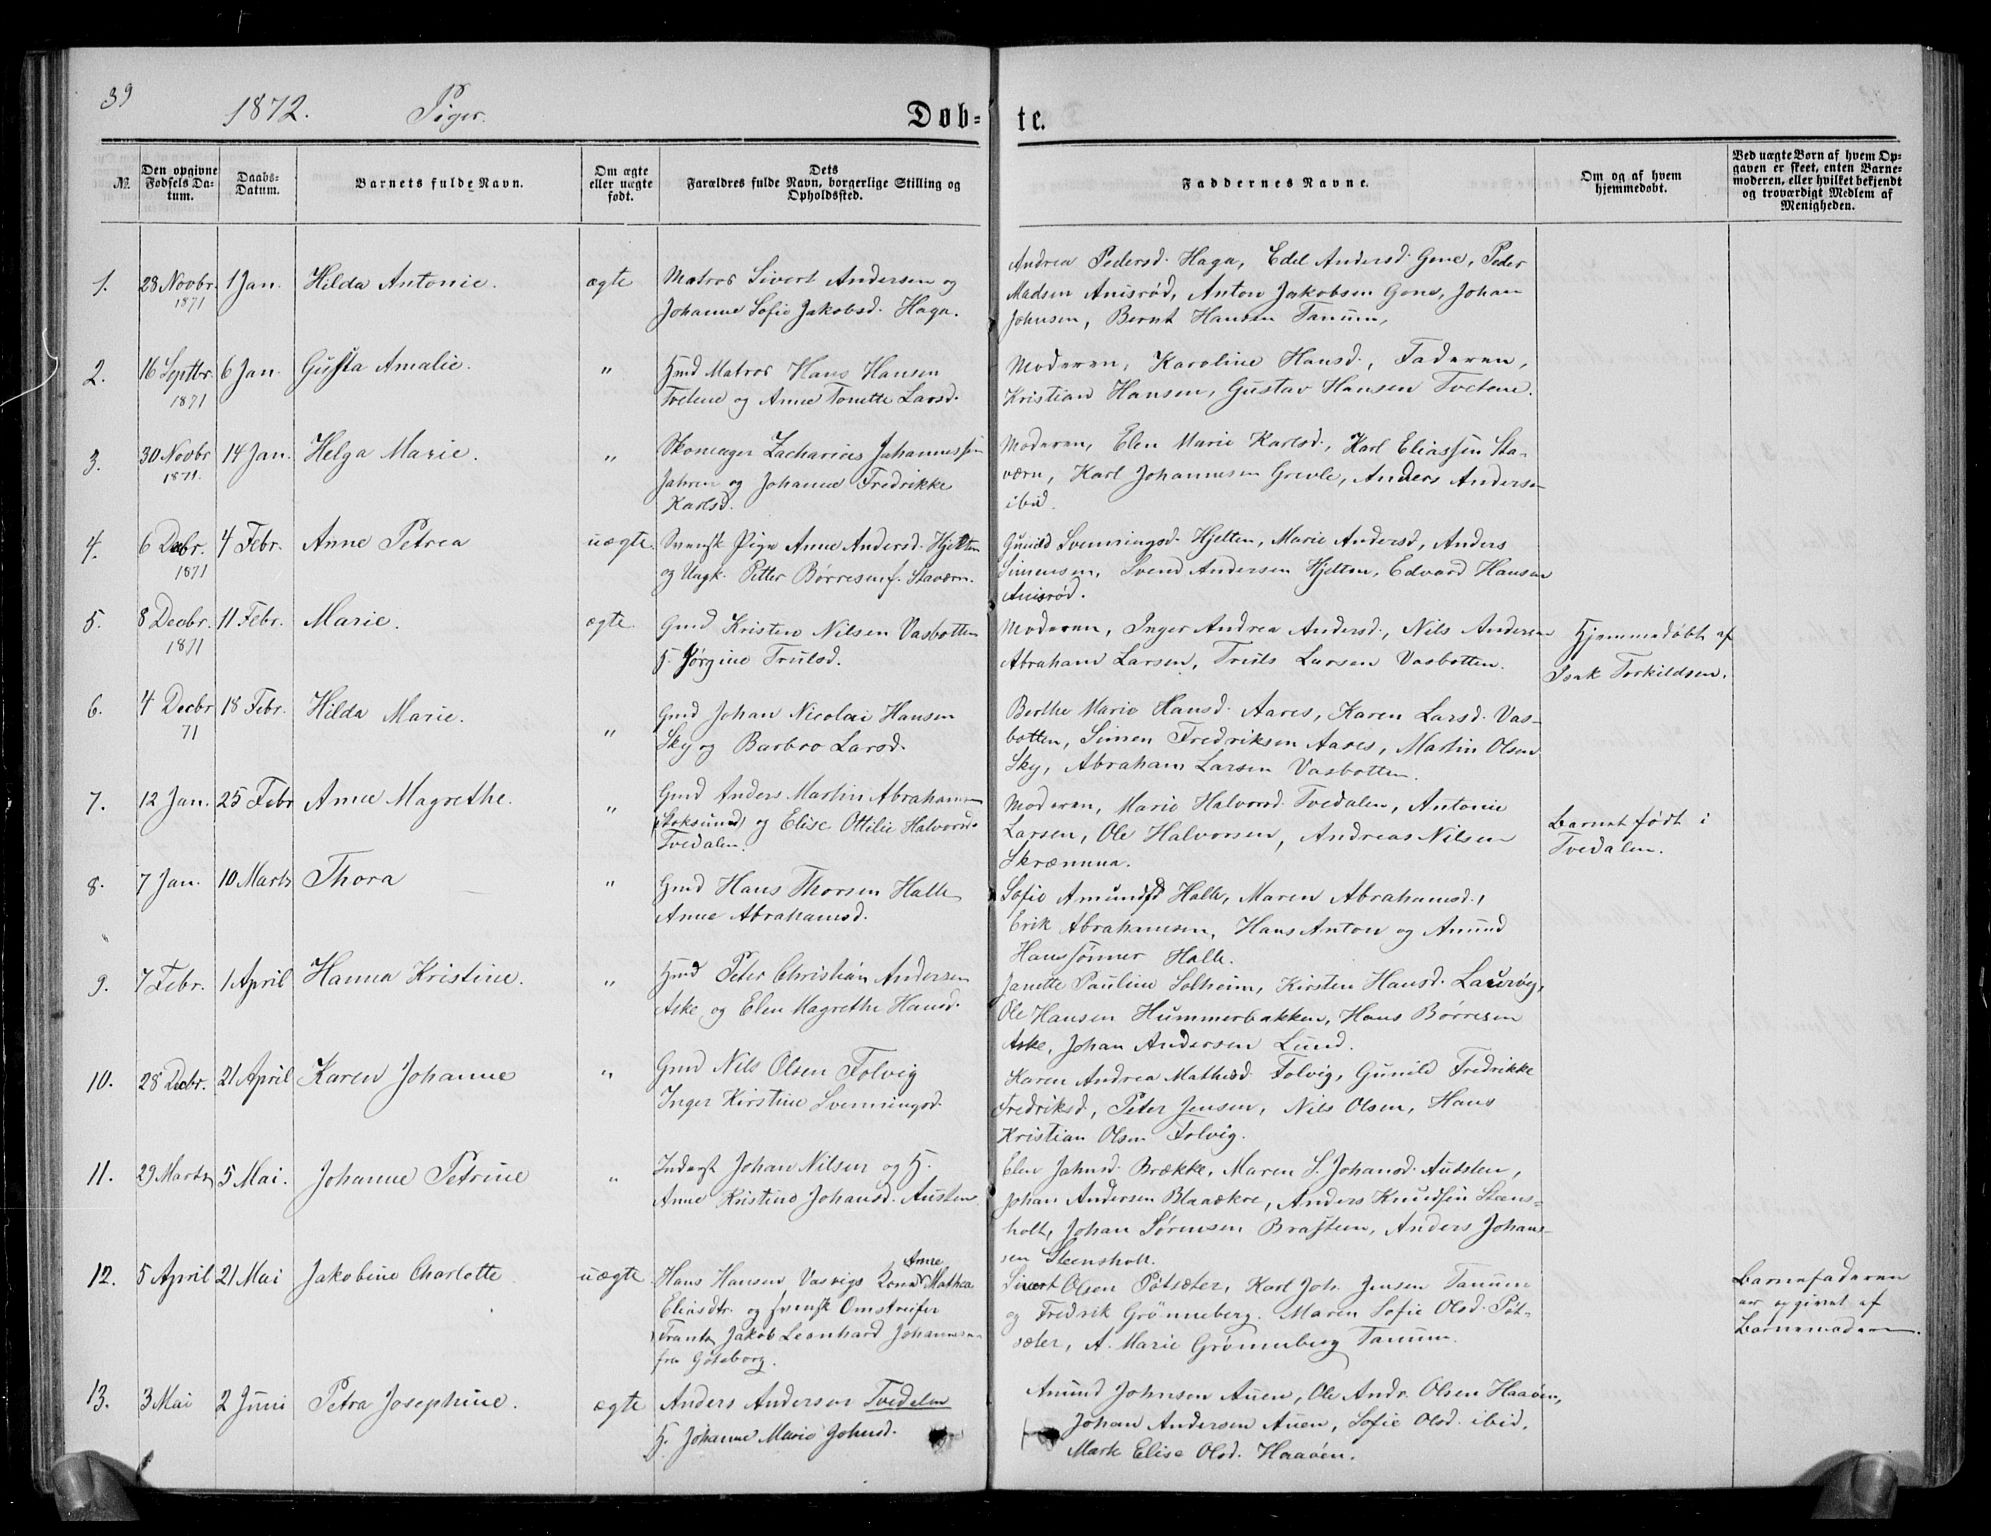 39
1872. Piger.
Døb- te.
№
Den opgivne Fødsels Datum.
Daabs-Datum.
Barnets fulde Navn.
Om ægte eller uægte født.
Dets Forældres fulde Navn, borgerlige Stilling og Opholdssted.
Faddernes Navne.
Om og af hvem hjemmedøbt.
Ved uægte Børn af hvem Opgaven er skeet, enten Barnemoderen, eller hvilket bekjendt og troværdigt Medlem af Menigheden.
1. 28 Novbr. 1871 1 Jan. Hilda Antonie. ægte
Matros Sivert Andersen og
Johanne Sofie Jakobsd. Haga.
Andrea Pedersd. Haga, Edel Andersd. Gone, Peder
Madsen Anisrød, Anton Jakobsen Gone, Johan
Johnsen, Bernt Hansen Tanum,
2. 16 Septbr. 1871 6 Jan. Gusta Amalie. "
Hmd Matros Hans Hansen
Tvetene og Anne Tonette Larsd.
Moderen, Karoline Hansd., Faderen,
Kristian Hansen, Gustav Hansen Tvetene.
3. 30 Novbr 1871. 14 Jan. Helga Marie. "
Skomager Zacharias Johannessen
Jahren og Johanne Fredrikke
Karlsd.
Moderen, Elen Marie Karlsd., Karl Eliassen Sta-
værn, Karl Johannesen Grevle, Anders Anderse
ibid.
4. 6 Decbr. 1871 4 Febr. Anne Petrea uægte.
Svensk Pige Anne Andersd. Hjelten
og Ungk. Petter Børresen f. Staværn.
Gunild Svenningsd. Hjelten, Marie Andersd, Anders
Simensen, Svend Andersen Hjelten, Edvard Hansen
Anisrød.
5. 8 Decbr. 1871 11 Febr. Marie. ægte
Gmd Kristen Nilsen Vasbotten
H. Jørgine Trulsd.
Moderen, Inger Andrea Andersd., Nils Andersen
Abraham Larsen, Truls Larsen Vasbotten.
Hjemmedøbt af
Isak Torkildsen.
6. 4 Decbr 71 18 Febr. Hilda Marie. "
Gmd Johan Nicolai Hansen
Sky og Barbro Larsd.
Berthe Marie Hansd. Aares, Karen Larsd. Vas-
botten, Simen Fredriksen Aares, Martin Olsen
Sky, Abraham Larsen Vasbotten.
7. 12 Jan. 25 Febr Anne Magrethe. "
Gmd Anders Martin Abrahamsen
(Stoksund) og Elise Ottilie Halvorsd.
Tvedalen.
Moderen, Marie Halvorsd. Tvedalen, Antonie
Larsen, Ole Halvorsen, Andreas Nilsen
Skræmma.
Barnet født i
Tvedalen.
8. 7 Jan. 10 Marts Thora "
Gmd Hans Thorsen Halle
Anne Abrahamsd.
Sofie Amundsd Halle, Maren Abrahamsd.,
Erik Abrahamsen, Hans Anton og Amund
Hanssønner Halle.
9. 7 Febr. 1 April Hanna Kristine. "
Hmd Peter Christian Andersen
Aske og Elen Magrethe Hansd.
Janette Pauline Solheim, Kirsten Hansd. Laurvig,
Ole Hansen Hummerbakken, Hans Børresen
Aske, Johan Andersen Lund.
10. 28 Decbr. 21 April Karen Johanne "
Gmd Nils Olsen Folvig
Inger Kirstine Svenningsd.
Karen Andrea Mathisd. Folvig, Gunild Fredrikke
Fredriksd, Peter Jensen, Nils Olsen, Hans
Kristian Olsen Folvig.
11. 29 Marts 5 Mai. Johanne Petrine "
Inderst Johan Nilsen og H.
Anne Kristine Johansd. Austen
Elen Jahnsd. Brække, Maren S. Johansd. Austen,
Johan Andersen Blaaækre, Anders Knudsen Steens-
holt, Johan Sørensen Brasteen, Anders Johan-
sen Steensholt.
12. 5 April 21 Mai Jakobine Charlotte uægte
Hans Hansen Vasvigs Kone Anne Mathea
Eliasdtr. og svensk Omstreifer
Frantz Jakob Leonhard Johannesen
fra Gøteborg.
Sivert Olsen Pøtsæter, Karl Joh. Jensen Tanum
og Fredrik Grønneberg. Maren Sofie Olsd. Pøt-
sæter, A. Marie Grønneberg Tanum.
Barnefaderen
er opgivet af
Barnemoderen.
13. 3 Mai 2 Juni Petra Josephine. ægte
Anders Andersen Tvedalen
H. Johanne Marie Johnsd.
Amund Johnsen Auen, Ole Andr. Olsen Haaøen,
Johan Andersen Auen, Sofie Olsd. ibid,
Mark Elise Olsd. Haaøen.